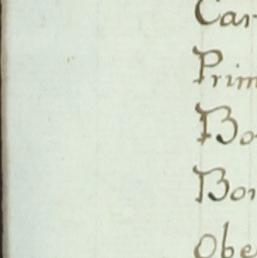 Car
Prim
Bo
Bor
Obe